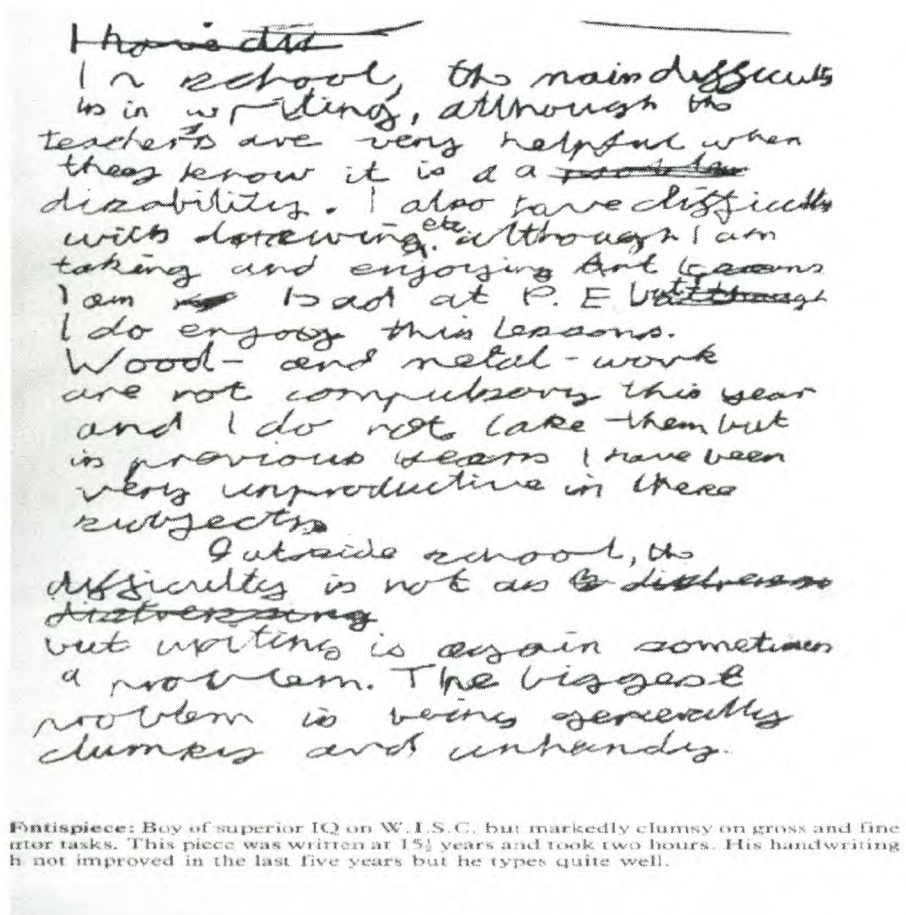 I have dis
In school, the main difficulty
is in writing, although the
teachers are very helpful when
they know it is a a
disability. I also have difficulty
with drawing etc. although I am
taking and enjoying Art Lessons
I am bad at P.E but
I do enjoy this Lessons.
Wood- and metal-work
are not compulsory this year
and I do not take them but
in previous years I have been
very unproductive in these
subjects
Outside school, the
difficulty is not as distress
distressing
but writing is again sometimes
a problem. The biggest
problem is being generally
clumsy and unhandy.
Fontispiece: Boy of superior IQ on W.I.S.C. but markedly clumsy on gross and fine
otor tasks. This piece was written at 15½ years and took two hours. His handwriting
h not improved in the last five years but he types quite well.